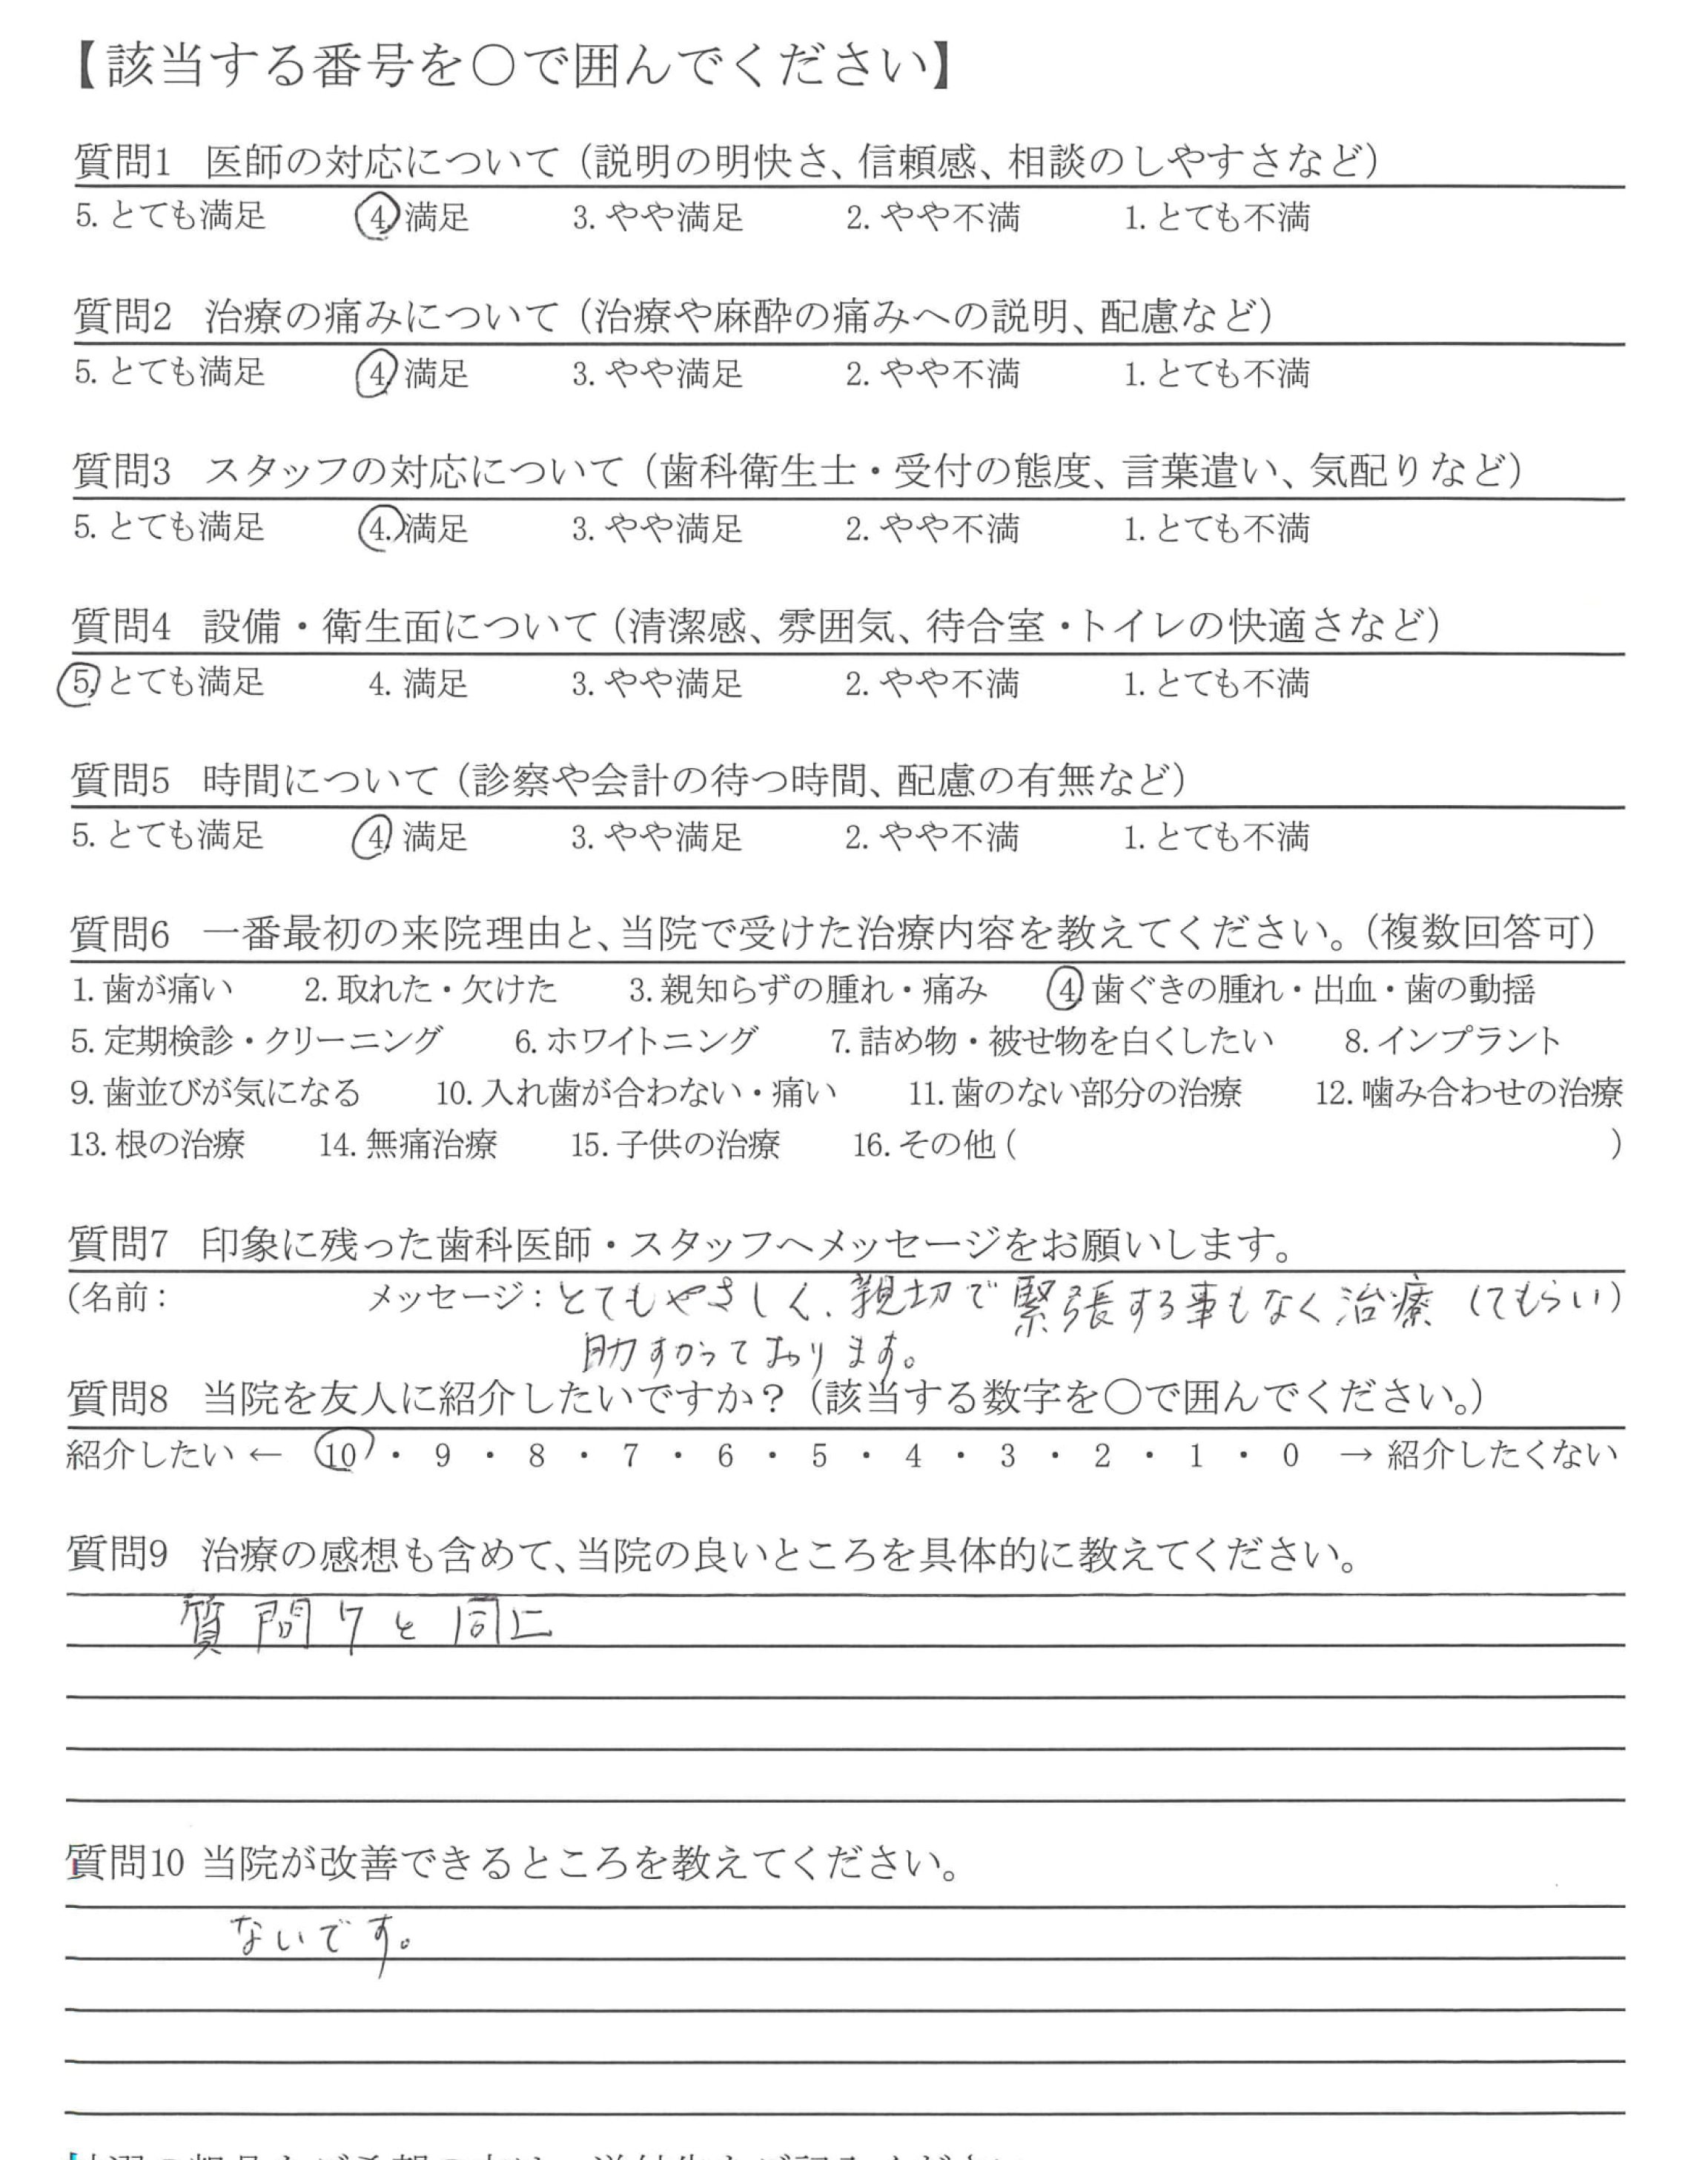 【該当する番号を〇で囲んでください】
質問1 医師の対応について（説明の明快さ、信頼感、相談のしやすさなど）
5. とても満足 4. 満足 3. やや満足 2. やや不満 1. とても不満
質問2 治療の痛みについて（治療や麻酔の痛みへの説明、配慮など）
5. とても満足 4. 満足 3. やや満足 2. やや不満 1. とても不満
質問3 スタッフの対応について（歯科衛生士・受付の態度、言葉遣い、気配りなど）
5. とても満足 4. 満足 3. やや満足 2. やや不満 1. とても不満
質問4 設備・衛生面について（清潔感、雰囲気、待合室・トイレの快適さなど）
5. とても満足 4. 満足 3. やや満足 2. やや不満 1. とても不満
質問5 時間について（診察や会計の待つ時間、配慮の有無など）
5. とても満足 4. 満足 3. やや満足 2. やや不満 1. とても不満
質問6 一番最初の来院理由と、当院で受けた治療内容を教えてください。（複数回答可）
1. 歯が痛い 2. 取れた・欠けた 3. 親知らずの腫れ・痛み 4. 歯ぐきの腫れ・出血・歯の動揺
5. 定期検診・クリーニング 6. ホワイトニング 7. 詰め物・被せ物を白くしたい 8. インプラント
9. 歯並びが気になる 10. 入れ歯が合わない・痛い 11. 歯のない部分の治療 12. 噛み合わせの治療
13. 根の治療 14. 無痛治療 15. 子供の治療 16. その他 ( )
質問7 印象に残った歯科医師・スタッフへメッセージをお願いします。
(名前： メッセージ：とてもやさしく、親切で緊張する事もなく治療してもらい)
助すかっております。
質問8 当院を友人に紹介したいですか？（該当する数字を〇で囲んでください。）
紹介したい ← 10 ・ 9 ・ 8 ・ 7 ・ 6 ・ 5 ・ 4 ・ 3 ・ 2 ・ 1 ・ 0 → 紹介したくない
質問9 治療の感想も含めて、当院の良いところを具体的に教えてください。
質問7と同に
質問10 当院が改善できるところを教えてください。
ないです。